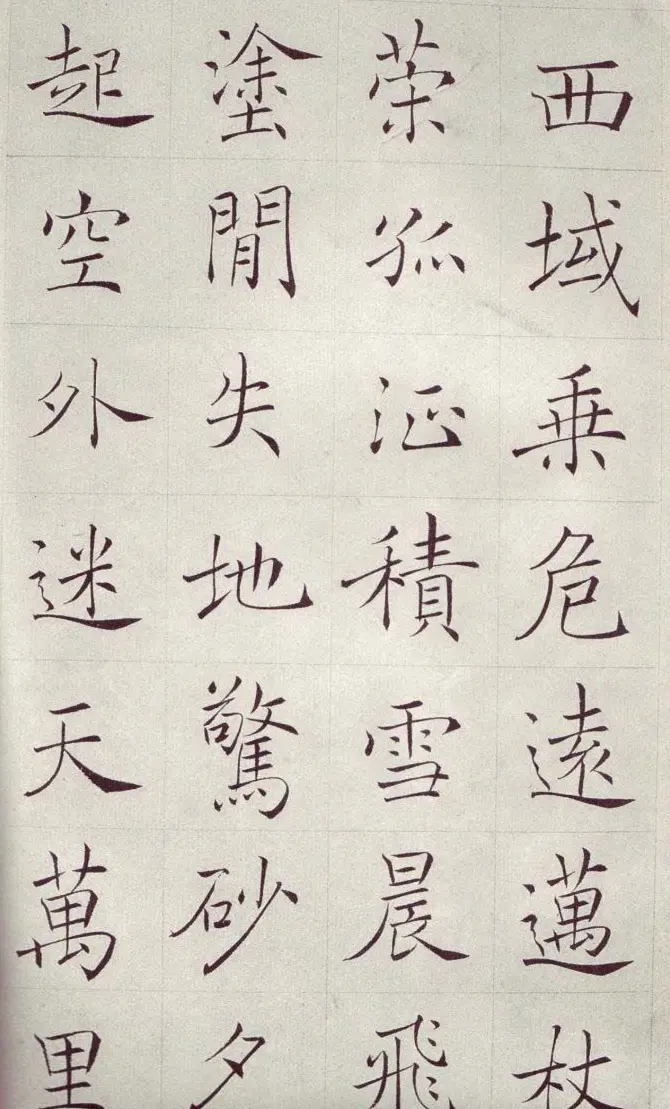 西域乘危遠邁杖
策孤征積雪晨飛
塗閒失地驚砂夕
起空外迷天萬里